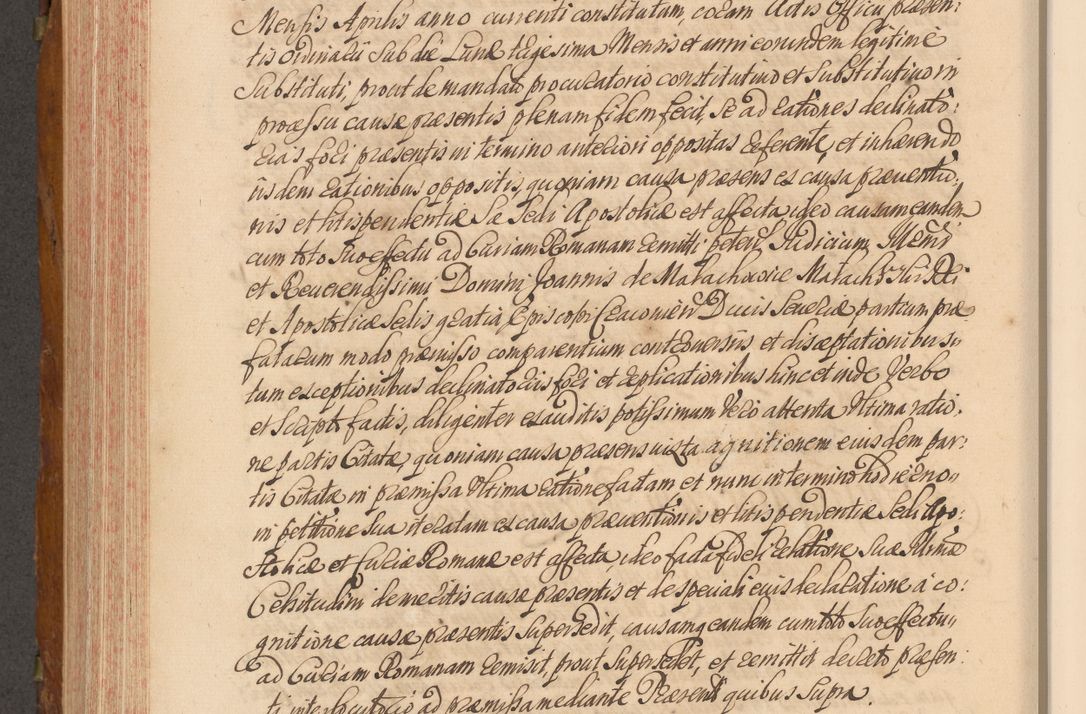 Mensis Aprilis anno currenti constitutum, coram Actis Officii præsen:
tis Ordinarii sub die Lunæ trigesima Mensis et anni eorundem legitime
Substituti, prout de mandato procuratorio constitutivo et Substitutivo in
processu causæ præsentis plenam fidem fecit, se ad rationes declinato:
rias fori præsentis in termino anteriori oppositas referente, et inhærendo
iisdem rationibus oppositis, quoniam causa præsens ex causa præventio:
nis et litispendentiæ Sæ Sedi Apostolicæ est affecta, ideo causam eandem
cum toto suo effectu ad Curiam Romanam remitti petent. Judicium Illmi
et Reverendissimi Domini Joannis de Małachowice Małachowski Dei
et Apostolicæ Sedis gratia, Episcopi Cracovien Ducis Severiæ, partium præ
fatarum modo præmisso comparentium controversiis et disceptationibus si,
tum exceptionibus declinatoriis fori et replicationibus hinc et inde Verbo
et Scripto factis, diligenter exauditis potissimum vero attenta Ultima ratio:
ne partis Citatæ, quoniam causa præsens iuxta agnitionem eiusdem par:
tis Citatæ in præmissa Ultima ratione factam et nunc in termino hodierno
in petitione sua iteratam ex causa præventionis et litis pendentiæ Sedi Apo:
stolicæ et Curiæ Romanæ est affecta, ideo facta fideli relatione Suæ Illmæ
Celsitudini de meritis causæ præsentis et de speciali eius declaratione à co:
gnitione causæ præsentis supersedit, causamq eandem cum toto suo effectu
ad Curiam Romanam remisit, prout supersedet, et remittit decreto præsen:
ti interlocutorio ad præmissa mediante Præsentibus quibus supra.